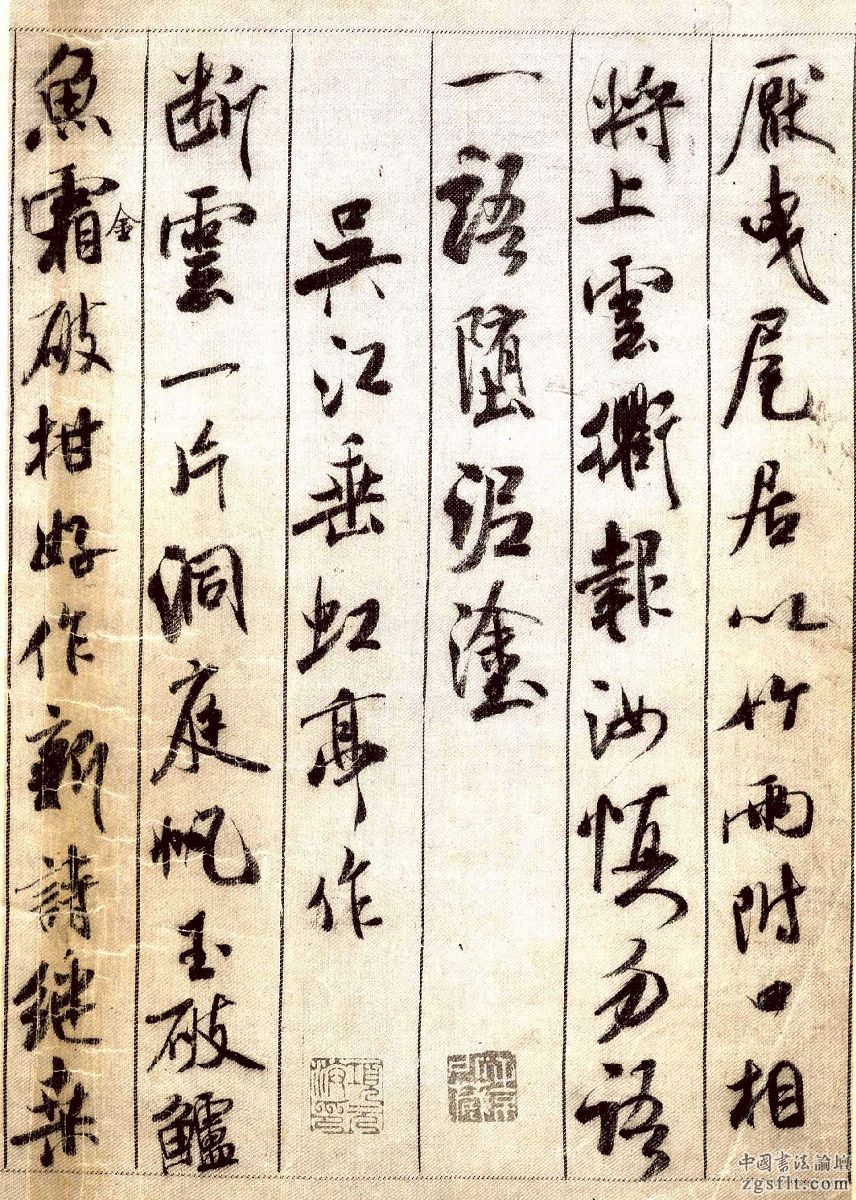 厭曳尾居以竹兩附口相
將上雲衢報汝慎勿語
一語墮泥塗
吳江垂虹亭作
断雲一片洞庭帆玉破鱸
魚霜金破柑好作新詩繼桒
中國書法論壇
zgsflt.com